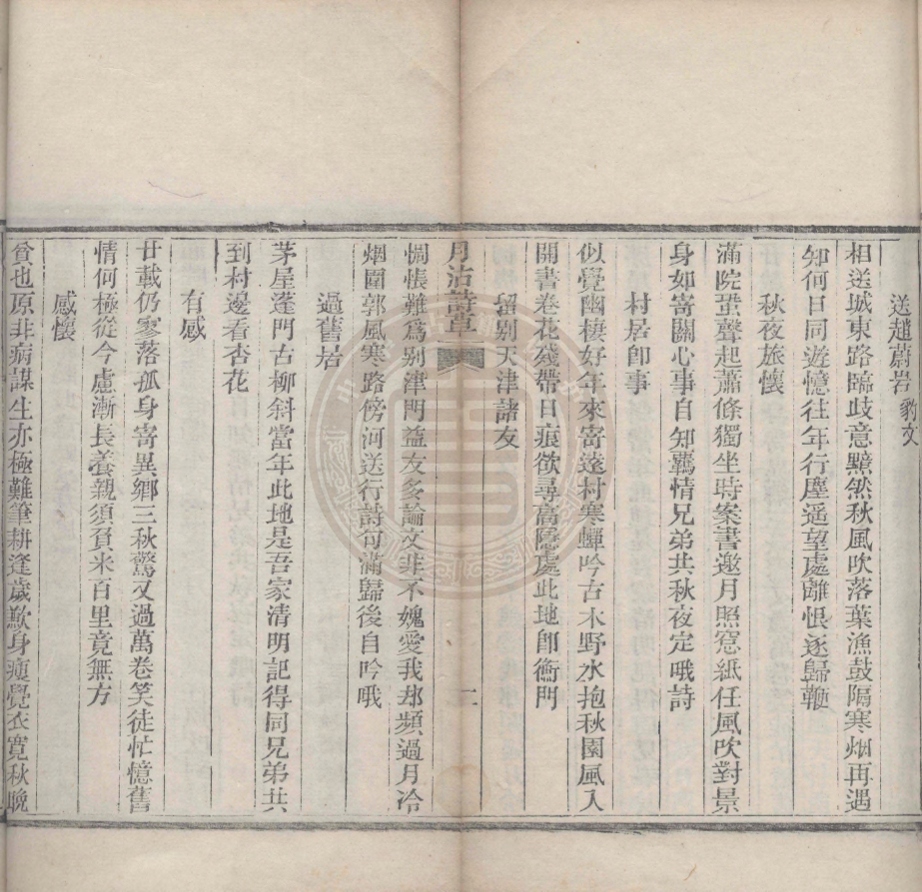 送趙蔚岩豹文
相送城東路臨歧意黯然秋風吹落葉漁鼓隔寒烟再遇
知何日同遊憶往年行塵遥望處離恨逐歸鞭
秋夜旅懷
滿院蛩聲起蕭條獨坐時案書邀月照窓紙任風吹對景
身如寄關心事自知羈情兄弟共秋夜定哦詩
村居卽事
似覺幽棲好年來寄遠村寒蟬吟古木野水抱秋園風入
開書卷花殘帶日痕欲尋高隱處此地卽衡門
留別天津諸友
月沽詩草
二
惆悵難爲別津門益友多論文非不媿愛我却頻過月冷
烟圍郭風寒路傍河送行詩句滿歸後自吟哦
過舊居
茅屋蓬門古柳斜當年此地是吾家清明記得同兄弟共
到村邊看杏花
有感
廿載仍寥落孤身寄異鄉三秋驚又過萬卷笑徒忙憶舊
情何極從今慮漸長養親須負米百里竟無方
感懷
貧也原非病謀生亦極難筆耕逢歲歉身瘦覺衣寬秋晚